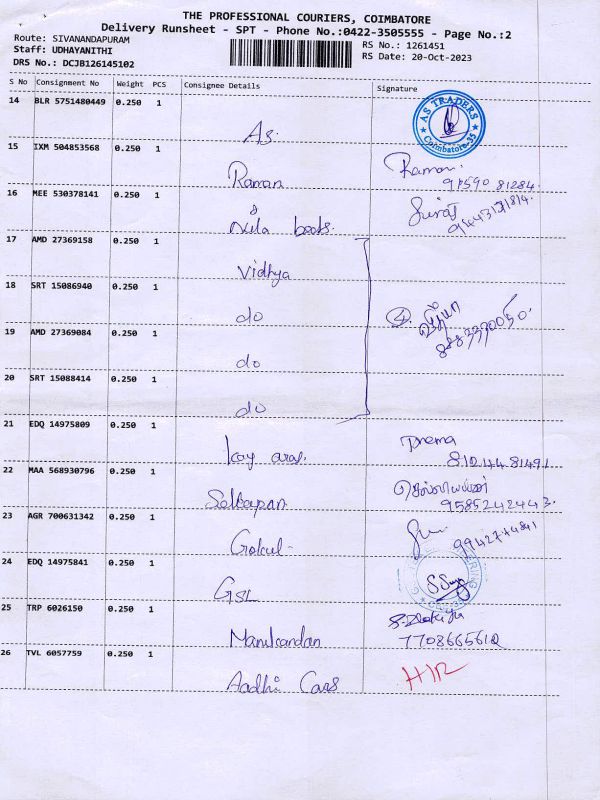 THE PROFESSIONAL COURIERS, COIMBATORE
Delivery Runsheet - SPT - Phone No.:0422-3505555 - Page No.:2
Route: SIVANANDAPURAM
RS No.: 1261451
Staff: UDHAYANITHI
RS Date: 20-Oct-2023
DRS No.: DCJB126145102
S No Consignment No Weight PCS Consignee Details Signature
14 BLR 5751480449 0.250 1 As.
AS TRADERS
Coimbatore-35
15 IXM 504853568 0.250 1 Raman Raman
97590 81284
16 MEE 530378141 0.250 1 & Nila books.
17 AMD 27369158 0.250 1 Vidhya
18 SRT 15086940 0.250 1 do
4 வித்யா
19 AMD 27369084 0.250 1 do
20 SRT 15088414 0.250 1 do
21 EDQ 14975809 0.250 1 Kay aras. Prema
812 44 81491
22 MAA 568930796 0.250 1
9585242443.
23 AGR 700631342 0.250 1 Gokul-
24 EDQ 14975841 0.250 1 GSL
25 TRP 6026150 0.250 1 Manikandan
7708665612
26 TVL 6057759 0.250 1 Aadhi Cars